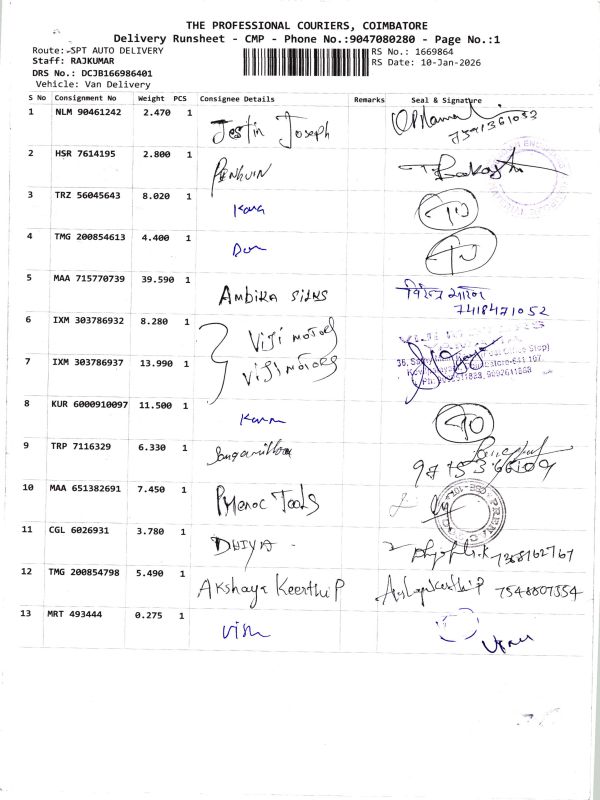 THE PROFESSIONAL COURIERS, COIMBATORE
Delivery Runsheet - CMP - Phone No.:9047080280 - Page No.:1
Route: SPT AUTO DELIVERY
Staff: RAJKUMAR
DRS No.: DCJB166986401
Vehicle: Van Delivery
RS No.: 1669864
RS Date: 10-Jan-2026
S No Consignment No Weight PCS Consignee Details Remarks Seal & Signature
1 NLM 90461242 2.470 1 Jestin Joseph
2 HSR 7614195 2.800 1 PENGUIN
3 TRZ 56045643 8.020 1
4 TMG 200854613 4.400 1
5 MAA 715770739 39.590 1 Ambika silks
7418471052
6 IXM 303786932 8.280 1 Viji motors
7 IXM 303786937 13.990 1 Viji motors
8 KUR 6000910097 11.500 1
9 TRP 7116329 6.330 1
10 MAA 651382691 7.450 1 Tools
11 CGL 6026931 3.780 1 DHIYA 7358162767
12 TMG 200854798 5.490 1 Akshaya Keerthi P 7548807554
13 MRT 493444 0.275 1